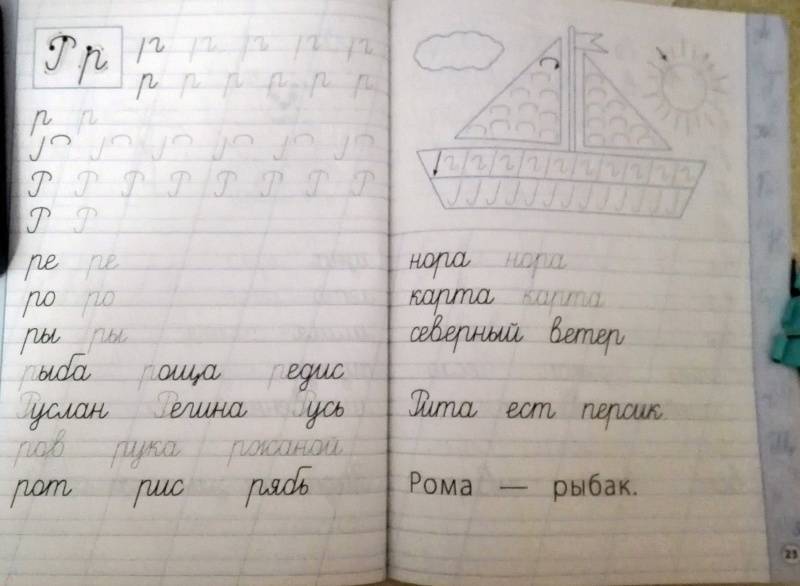 Р р р р р р р р
р р р р р р
р р
Р Р Р Р Р Р Р Р
Р Р
ре ре
ро ро
ры ры
рыба роща редис
Руслан Регина Русь
ров рука ржаной
рот рис рябь
нора нора
карта карта
северный ветер
Рита ест персик
Рома — рыбак.
23